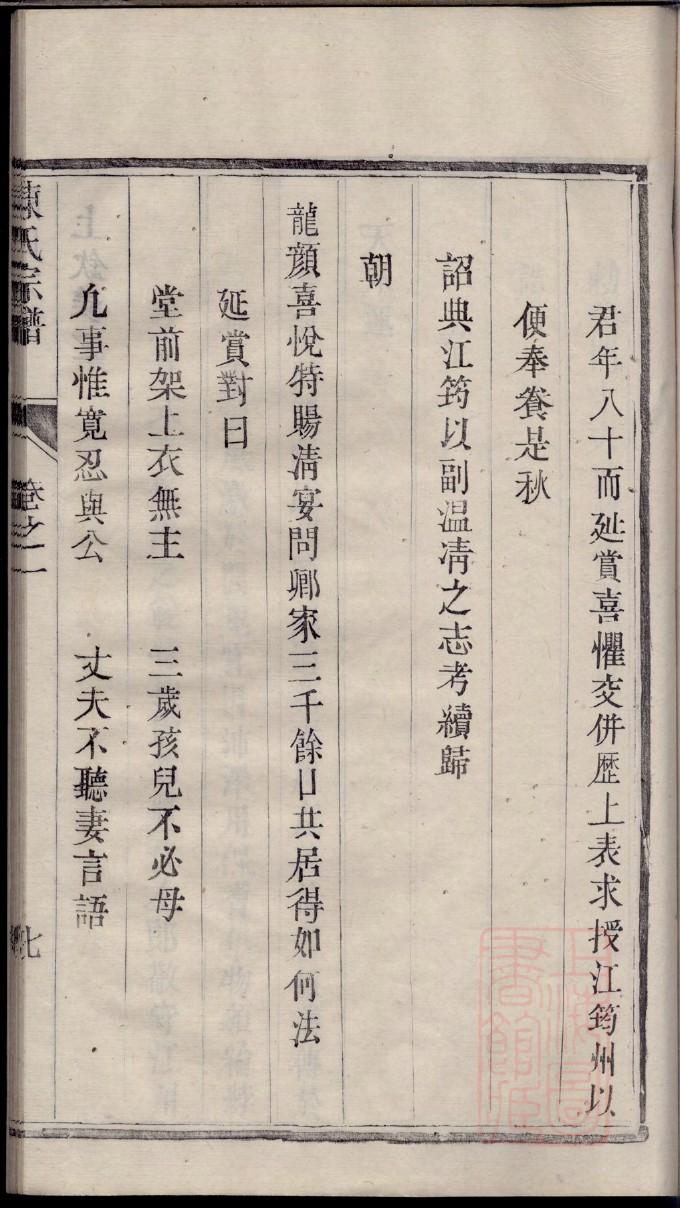 君年八十而延賞喜懼交併歷上表求授江筠州以
便奉養是秋
詔典江筠以副温凊之志考續歸
朝
龍顏喜悅特賜清宴問鄉家三千餘口共居得如何法
延賞對曰
堂前架上衣無主 三歲孩兒不必母
凢事惟寬忍與公 丈夫不聽妻言語
陳氏宗譜 卷之一 七
上海圖書館藏